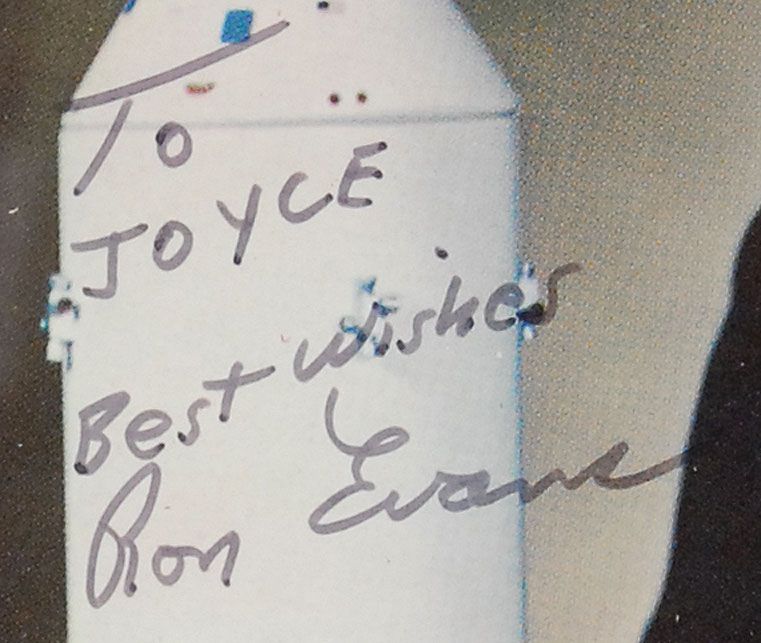 To
JOYCE
Best wishes
Ron Evans